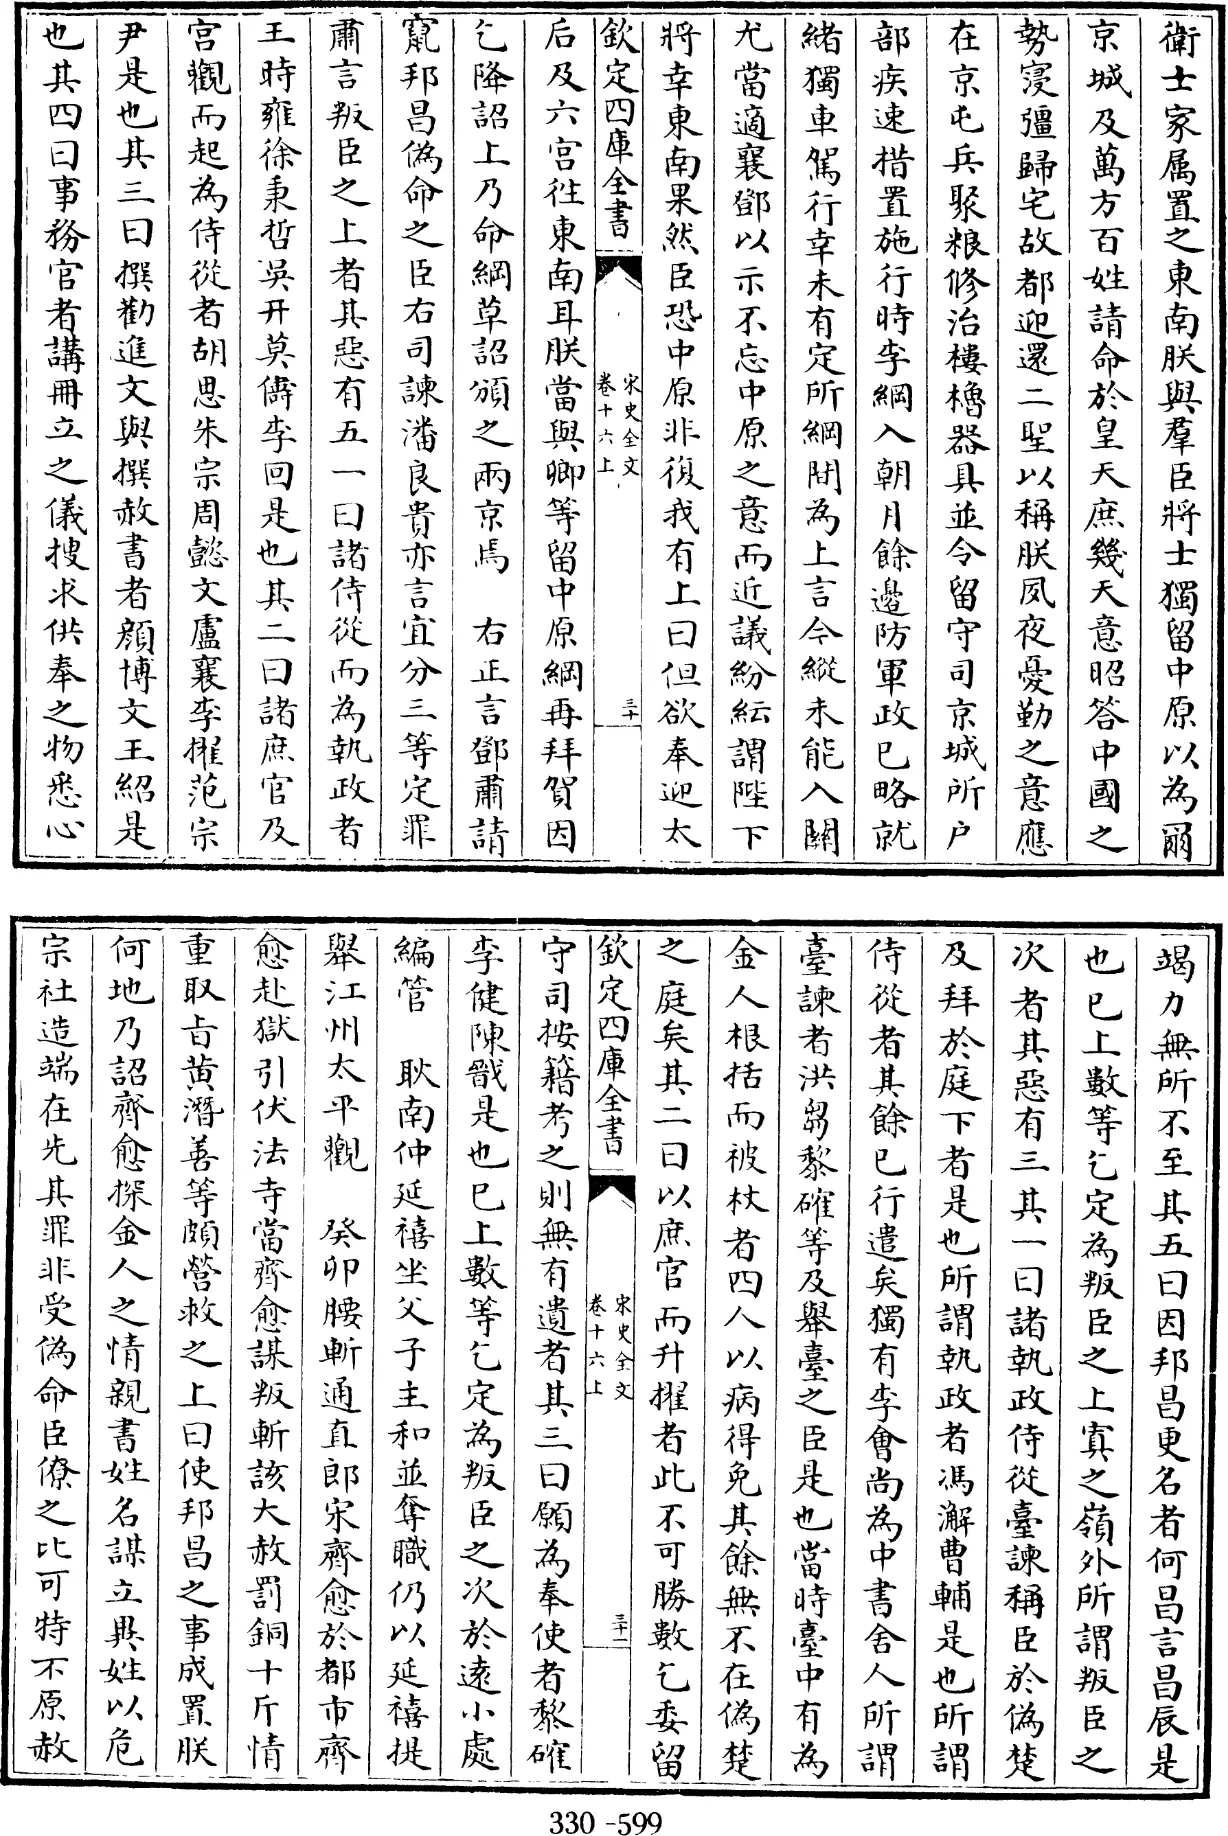 衛士家属置之東南朕與羣臣將士獨留中原以為爾
京城及萬方百姓請命於皇天庶幾天意昭答中國之
勢寖彊歸宅故都迎還二聖以稱朕夙夜憂勤之意應
在京屯兵聚粮修治樓櫓器具並令留守司京城所户
部疾速措置施行時李綱入朝月餘邊防軍政已略就
緒獨車駕行幸未有定所綱間為上言今縱未能入關
尤當適襄鄧以示不忘中原之意而近議紛紜謂陛下
將幸東南果然臣恐中原非復我有上曰但欲奉迎太
欽定四庫全書
宋史全文
卷十六上
三十
后及六宫徃東南耳朕當與卿等留中原綱再拜賀因
乞降詔上乃命綱草詔頒之兩京焉　右正言鄧肅請
竄邦昌偽命之臣右司諫潘良貴亦言宜分三等定罪
肅言叛臣之上者其惡有五一曰諸侍從而為執政者
王時雍徐秉哲吳幵莫儔李回是也其二曰諸庶官及
宫觀而起為侍從者胡思朱宗周懿文盧襄李擢范宗
尹是也其三曰撰勸進文與撰赦書者顔博文王紹是
也其四曰事務官者講冊立之儀搜求供奉之物悉心
竭力無所不至其五曰因邦昌更名者何昌言昌辰是
也已上數等乞定為叛臣之上寘之嶺外所謂叛臣之
次者其惡有三其一曰諸執政侍從臺諫稱臣於偽楚
及拜於庭下者是也所謂執政者馮澥曹輔是也所謂
侍從者其餘已行遣矣獨有李會尚為中書舍人所謂
臺諫者洪芻黎確等及舉臺之臣是也當時臺中有為
金人根括而被杖者四人以病得免其餘無不在偽楚
之庭矣其二曰以庶官而升擢者此不可勝數乞委留
欽定四庫全書
宋史全文
卷十六上
三十一
守司按籍考之則無有遺者其三曰願為奉使者黎確
李健陳戩是也已上數等乞定為叛臣之次於遠小處
編管　耿南仲延禧坐父子主和並奪職仍以延禧提
舉江州太平觀　癸卯腰斬通直郎宋齊愈於都市齊
愈赴獄引伏法寺當齊愈謀叛斬該大赦罰銅十斤情
重取㫖黄潛善等頗營救之上曰使邦昌之事成置朕
何地乃詔齊愈探金人之情親書姓名謀立異姓以危
宗社造端在先其罪非受偽命臣僚之比可特不原赦
330-599